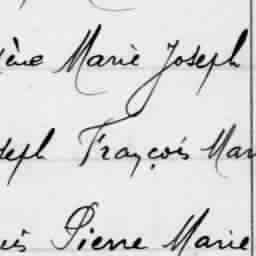 ène Marie Joseph
seph François Mar
uis Pierre Marie